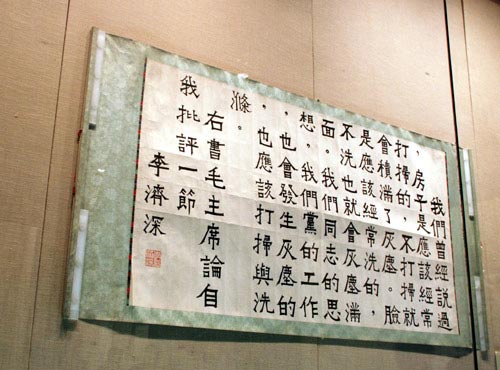 我們曾經說過
，房子是應該經常
打掃的，不打掃就
會積滿了灰塵。臉
是應該經常洗的，
不洗也就會灰塵滿
面。我們同志的思
想，我們黨的工作
，也會發生灰塵的
，也應該打掃與洗
滌。
右書毛主席論自
我批評一節
李濟深